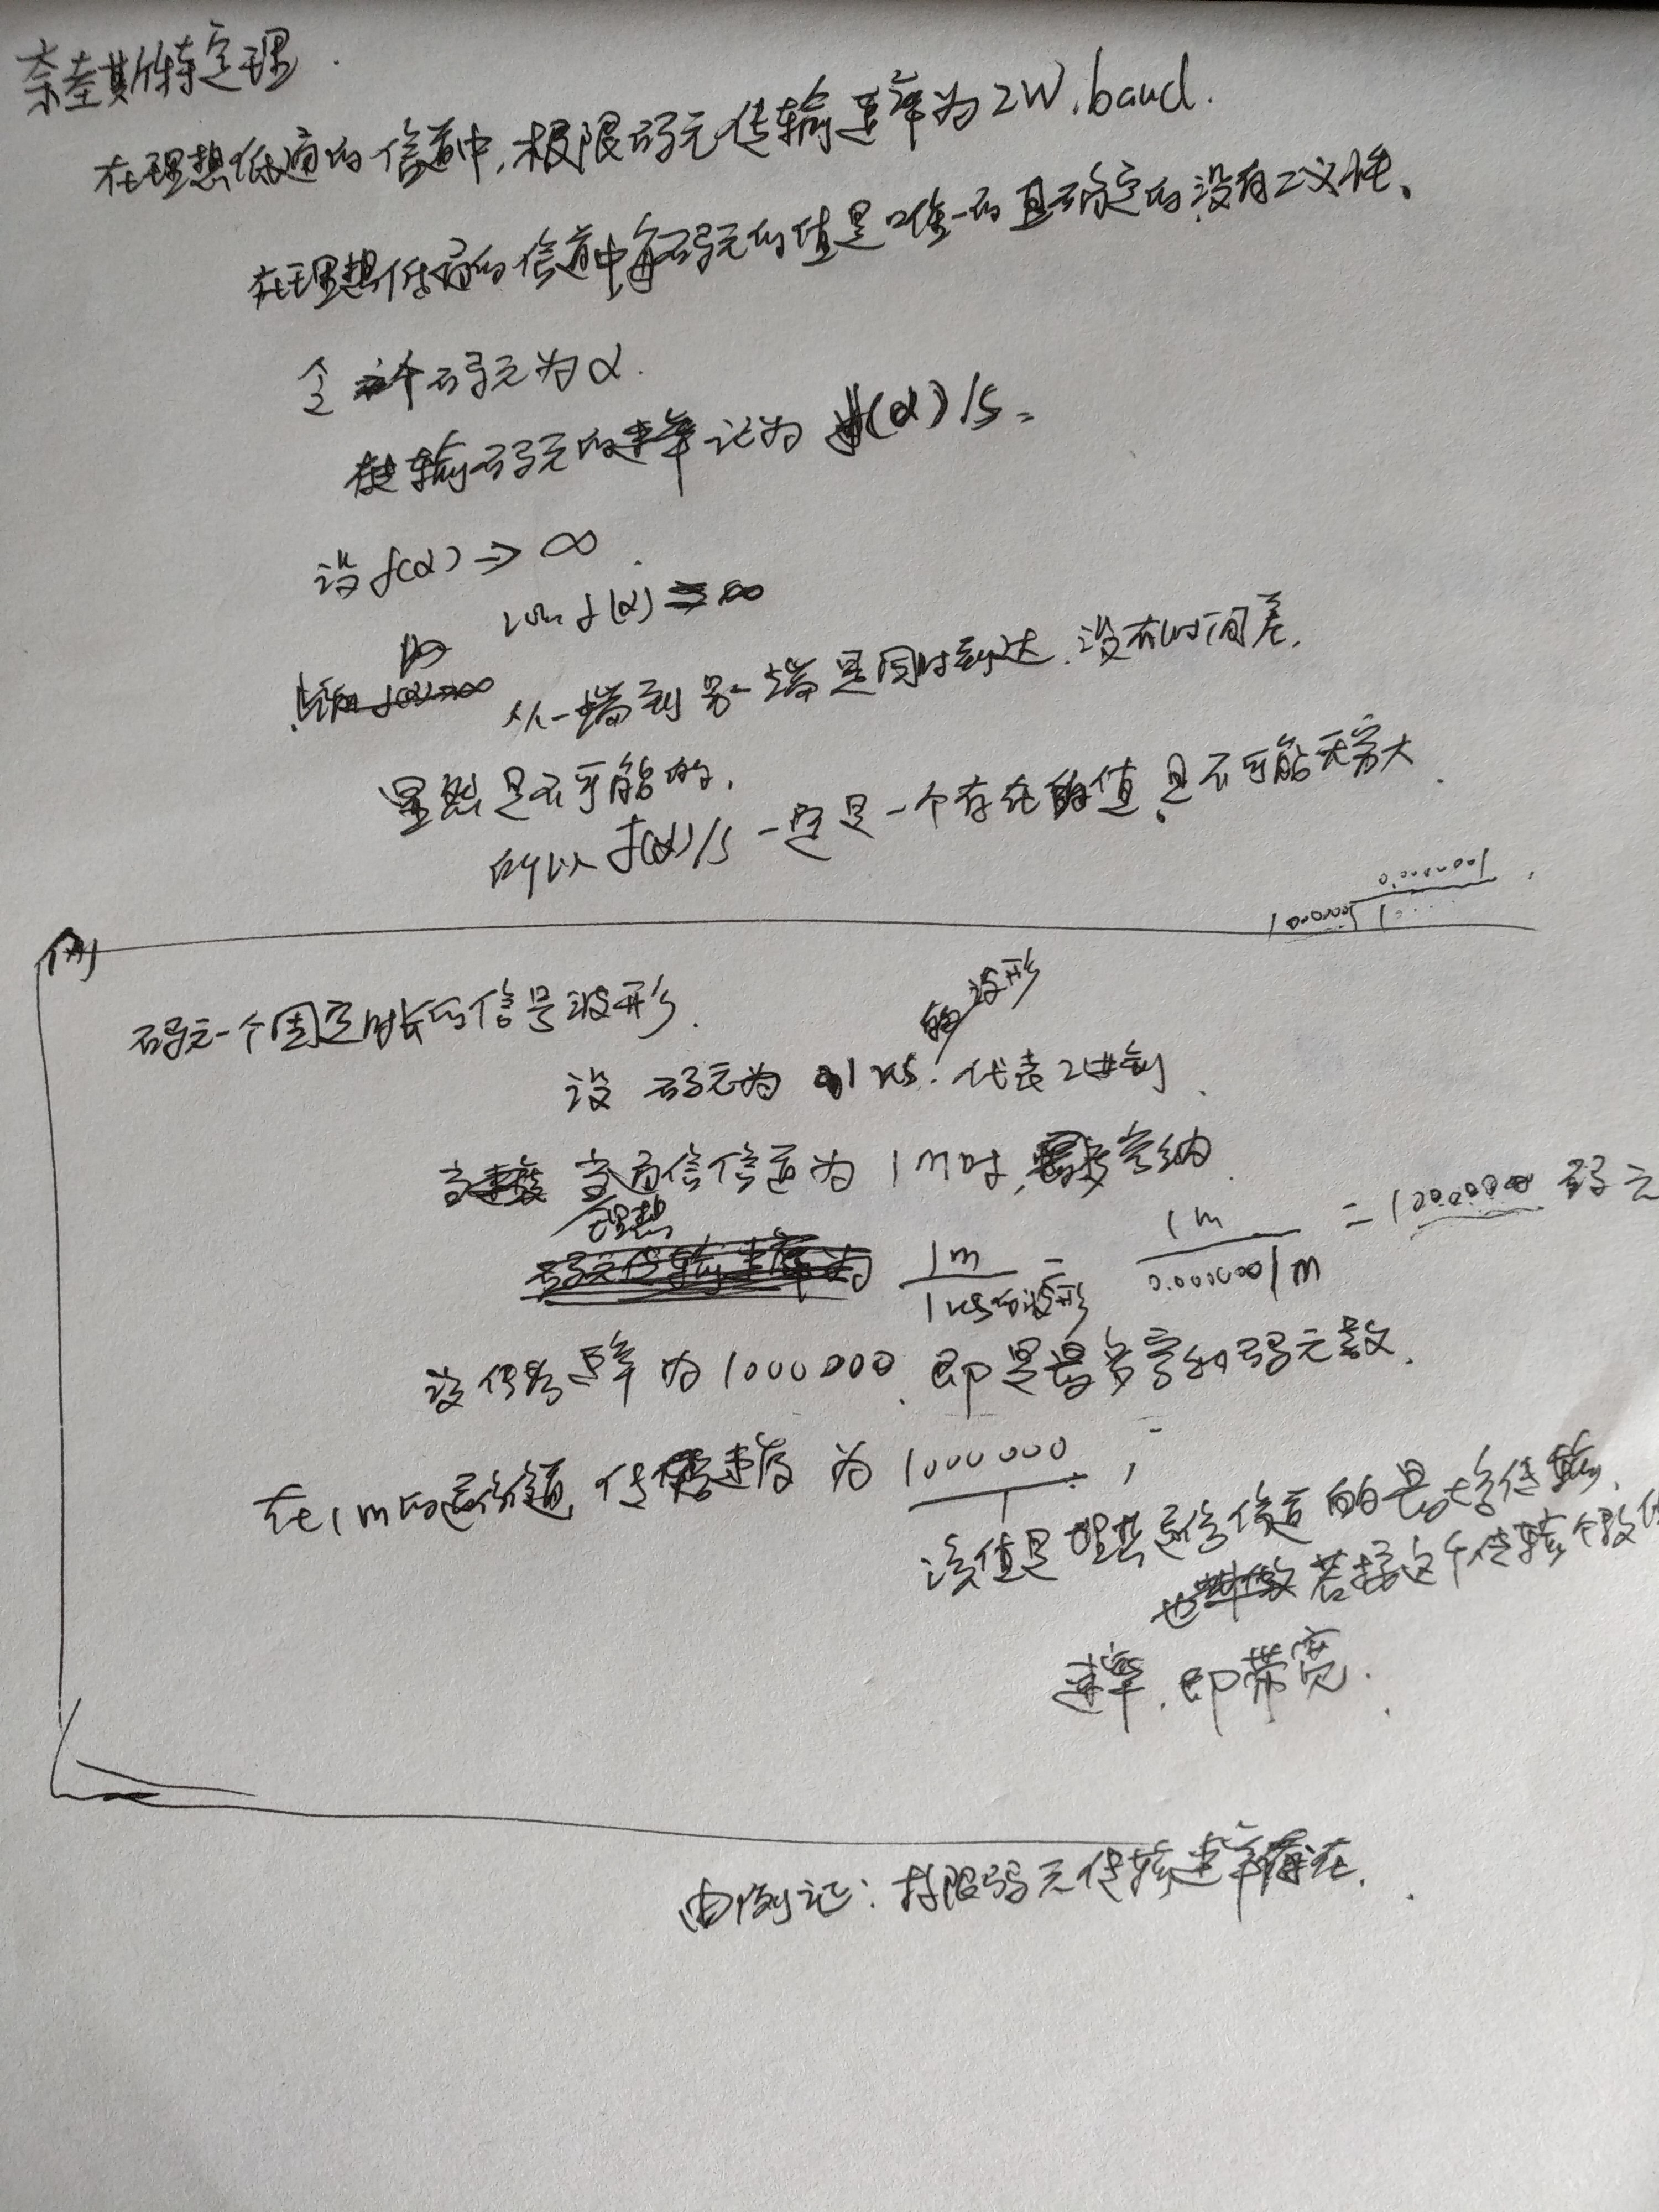 奈奎斯特定理.
在理想低通的信道中,极限码元传输速率为2W.baud.
在理想低通的信道中每码元的值是唯一的且确定的没有二义性、
令 码元为α.
传输码元的速率记为 f(α)/s。
设f(α)→∞.
lim f(α)=∞
从一端到另一端是同时到达.没有时间差.
显然是不可能的.
所以 f(α)/s 一定是一个存在的值.且不可能无穷大.
例
码元一个固定时长的信号波形.
的波形
设 码元为 1 . 代表2进制.
当通信信道为 1m时, 容纳
理想
1m / 1 的波形 = 1m / 0.0000001m = 1000000 码元
该传务速率为1000000.即是最多容纳码元数.
在1m的通信道,传 速度 为 1000000 / 1 ,
该值是理想通信信道的最大 传输.
也 若按这个传输个数
速率.即带宽.
由例证:极限码元传输速率存在.